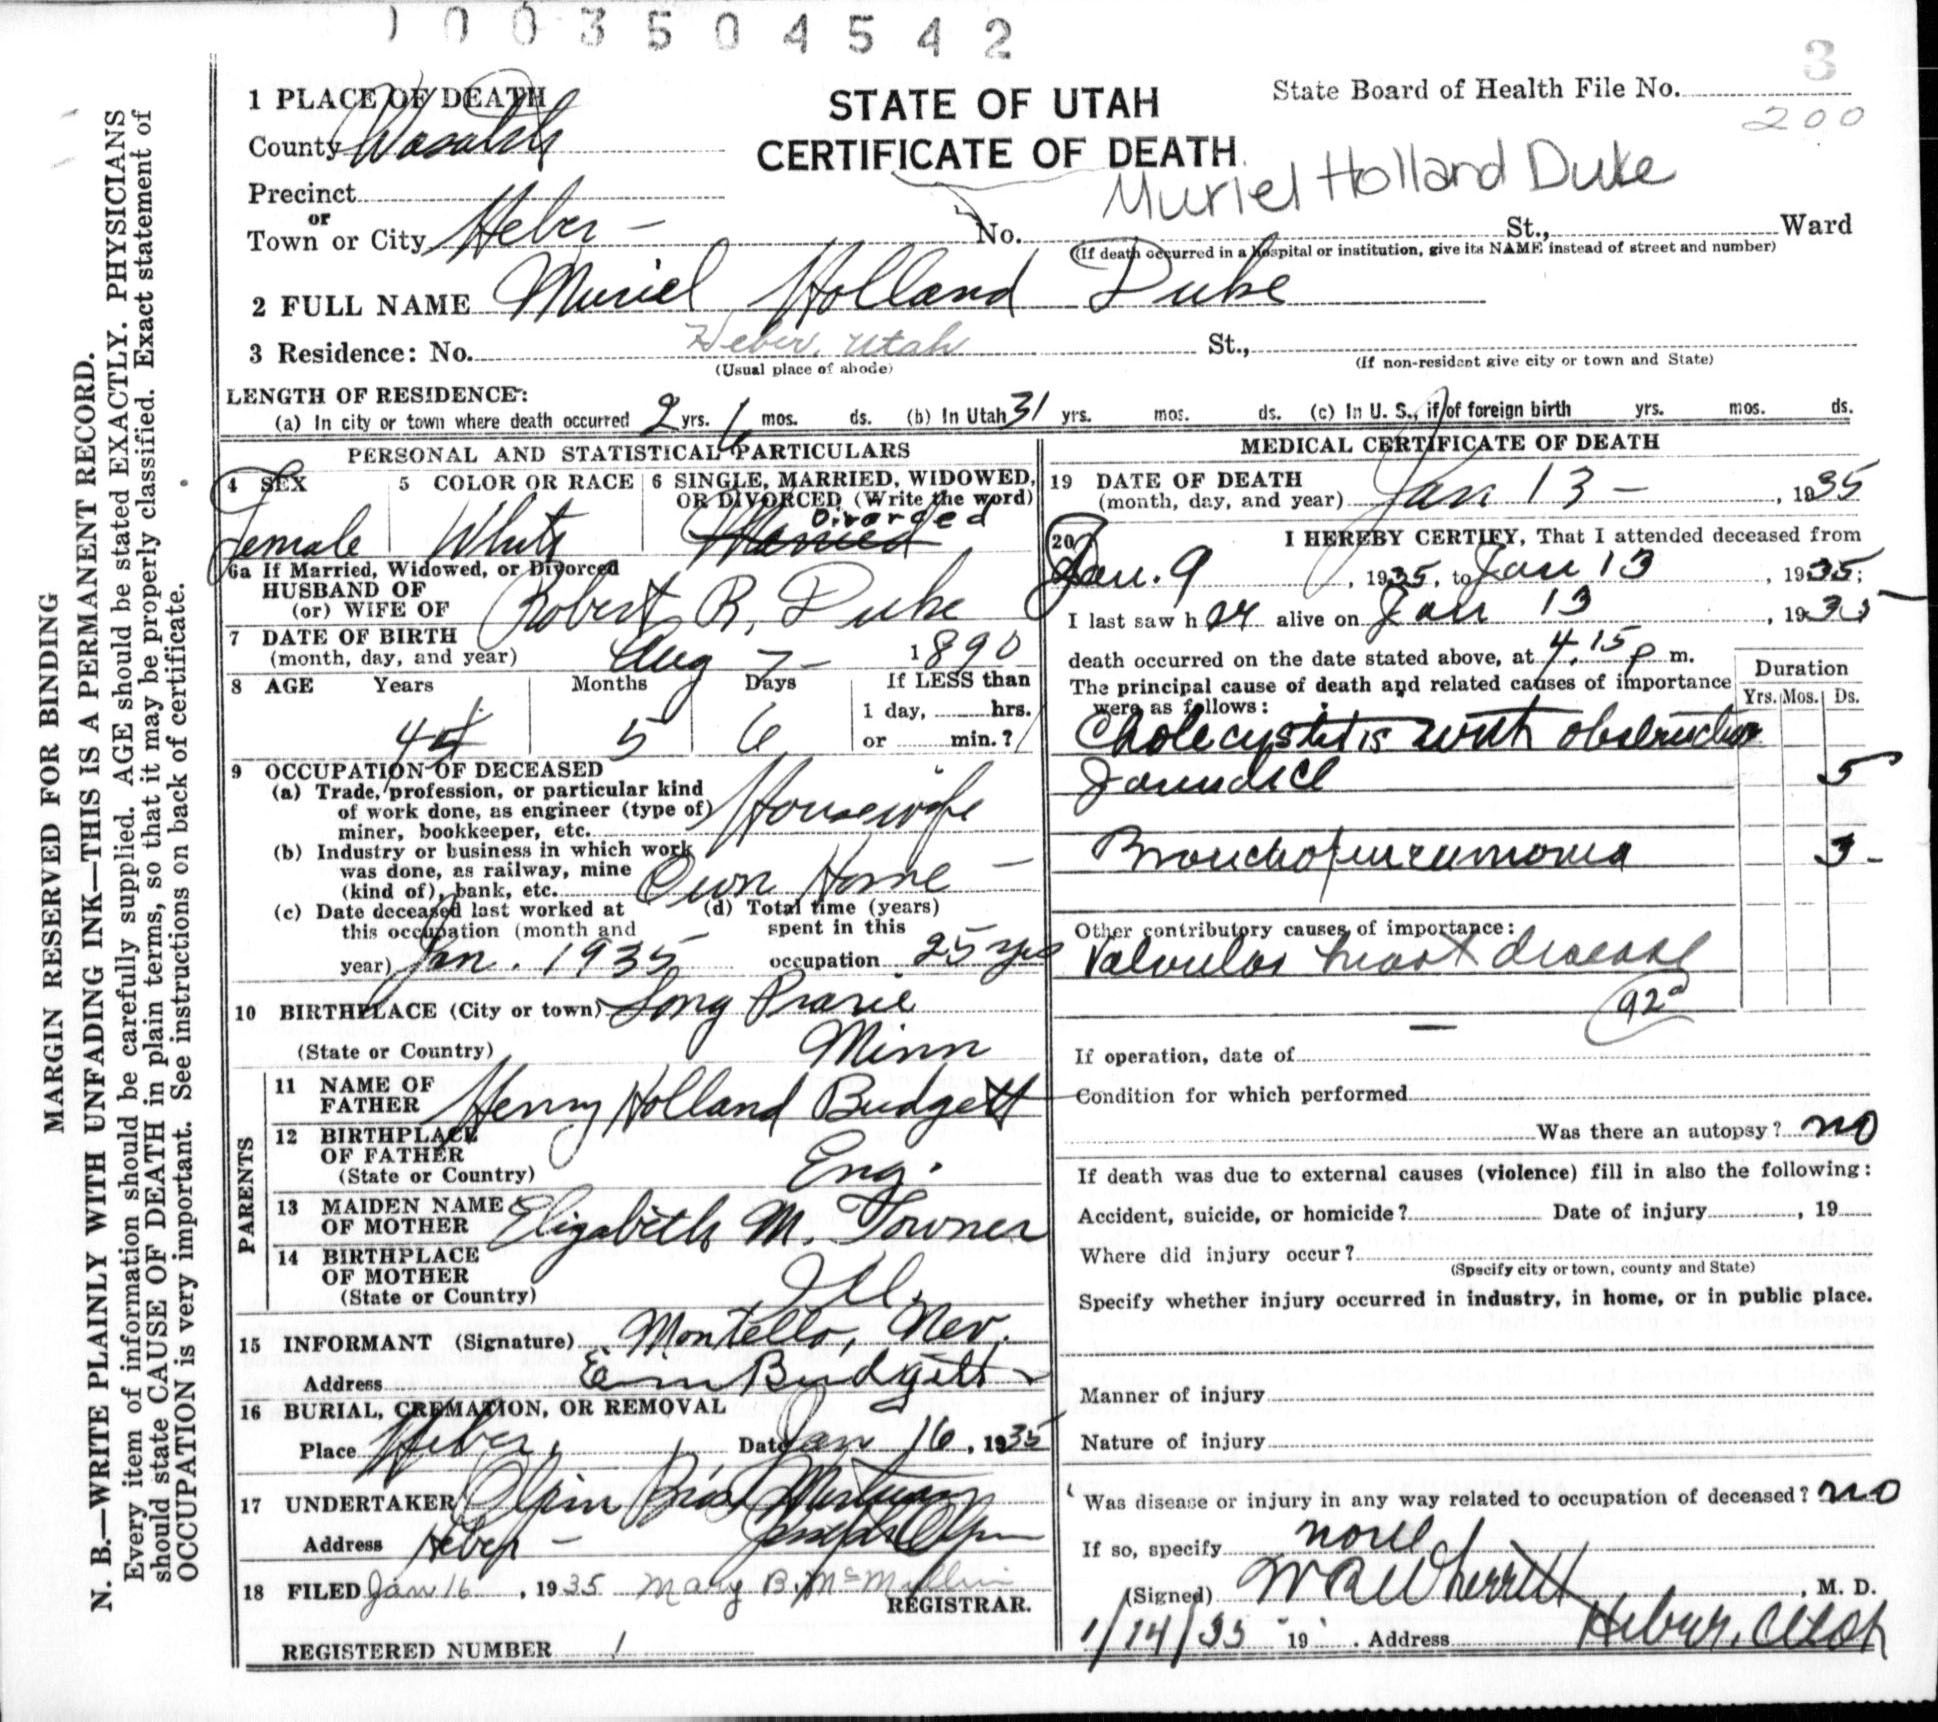 1003504542
3
1 PLACE OF DEATH
STATE OF UTAH
State Board of Health File No.
200
County Wasatch
CERTIFICATE OF DEATH
Muriel Holland Duke
Precinct
or
Town or City Heber - No. St., Ward
(If death occurred in a hospital or institution, give its NAME instead of street and number)
2 FULL NAME Muriel Holland Duke
3 Residence: No. Heber, Utah St.,
(Usual place of abode) (If non-resident give city or town and State)
LENGTH OF RESIDENCE:
(a) In city or town where death occurred 2 yrs. 6 mos. ds. (b) In Utah 31 yrs. mos. ds. (c) In U. S., if of foreign birth yrs. mos. ds.
PERSONAL AND STATISTICAL PARTICULARS
4 SEX 5 COLOR OR RACE 6 SINGLE, MARRIED, WIDOWED,
OR DIVORCED (Write the word)
Divorced
Female White Married
6a If Married, Widowed, or Divorced
HUSBAND OF
(or) WIFE OF Robert R. Duke
7 DATE OF BIRTH
(month, day, and year) Aug 7 - 1890
8 AGE Years Months Days If LESS than
1 day, hrs.
44 5 6 or min.?
9 OCCUPATION OF DECEASED
(a) Trade, profession, or particular kind
of work done, as engineer (type of)
miner, bookkeeper, etc. Housewife
(b) Industry or business in which work
was done, as railway, mine
(kind of), bank, etc. Own Home -
(c) Date deceased last worked at (d) Total time (years)
this occupation (month and spent in this
year) Jan. 1935 occupation 25 yrs
10 BIRTHPLACE (City or town) Long Prarie
(State or Country) Minn
PARENTS
11 NAME OF
FATHER Henry Holland Budgett
12 BIRTHPLACE
OF FATHER
(State or Country) Eng.
13 MAIDEN NAME
OF MOTHER Elizabeth M. Towner
14 BIRTHPLACE
OF MOTHER
(State or Country) Ill.
15 INFORMANT (Signature) Montello, Nev.
Address Budgett
16 BURIAL, CREMATION, OR REMOVAL
Place Heber, Date Jan 16, 1935
17 UNDERTAKER Olpin Bros Mortuary
Address Heber - Joseph Olpin
18 FILED Jan 16, 1935 Mary B. McMillin
REGISTRAR.
REGISTERED NUMBER 1
MEDICAL CERTIFICATE OF DEATH
19 DATE OF DEATH
(month, day, and year) Jan 13 -, 1935
20 I HEREBY CERTIFY, That I attended deceased from
Jan. 9, 1935, to Jan 13, 1935;
I last saw h er alive on Jan 13, 1935
death occurred on the date stated above, at 4.15 p m.
Duration
The principal cause of death and related causes of importance
were as follows: Yrs. Mos. Ds.
Cholecystitis with obstructive
Jaundice 5
Bronchopneumonia 3-
Other contributory causes of importance:
Valvular heart disease
92a
If operation, date of
Condition for which performed
Was there an autopsy? no
If death was due to external causes (violence) fill in also the following:
Accident, suicide, or homicide? Date of injury, 19
Where did injury occur?
(Specify city or town, county and State)
Specify whether injury occurred in industry, in home, or in public place.
Manner of injury
Nature of injury
Was disease or injury in any way related to occupation of deceased? no
If so, specify none
(Signed) W R Wherritt, M. D.
1/14/35 19 . Address Heber, Utah
MARGIN RESERVED FOR BINDING
N. B.—WRITE PLAINLY WITH UNFADING INK—THIS IS A PERMANENT RECORD.
Every item of information should be carefully supplied. AGE should be stated EXACTLY. PHYSICIANS
should state CAUSE OF DEATH in plain terms, so that it may be properly classified. Exact statement of
OCCUPATION is very important. See instructions on back of certificate.